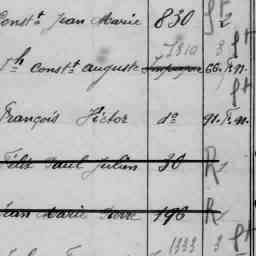 Const.t Jean Marie 830 St 2
7310 3 St
J.h Const.t Auguste 66. F.n.
St
François Victor d.o 91. F. n.
Félix Paul Julien 30 R
Jean Marie Pierre 196 R
1333 3 St